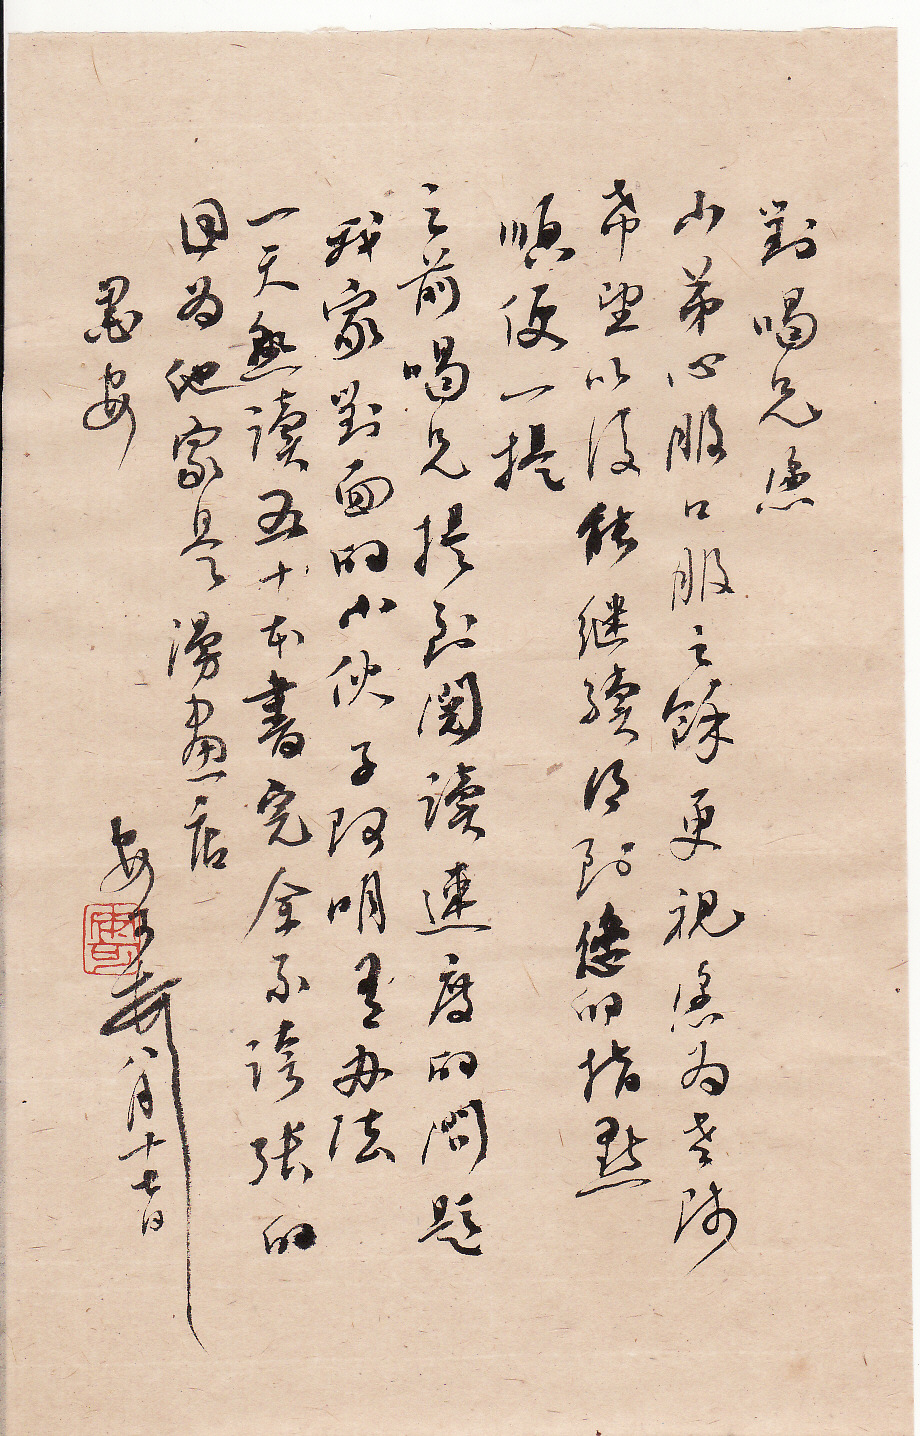 對喝兄您
小弟心服口服之餘更視您為老師
希望以後能继續得到您的指點
順便一提
之前喝兄提到閱讀速度的問題
我家對面的小伙子阿明有办法
一天熟讀五十本書完全不誇張的
因為他家是漫畫店
墨安
安
八月十七日